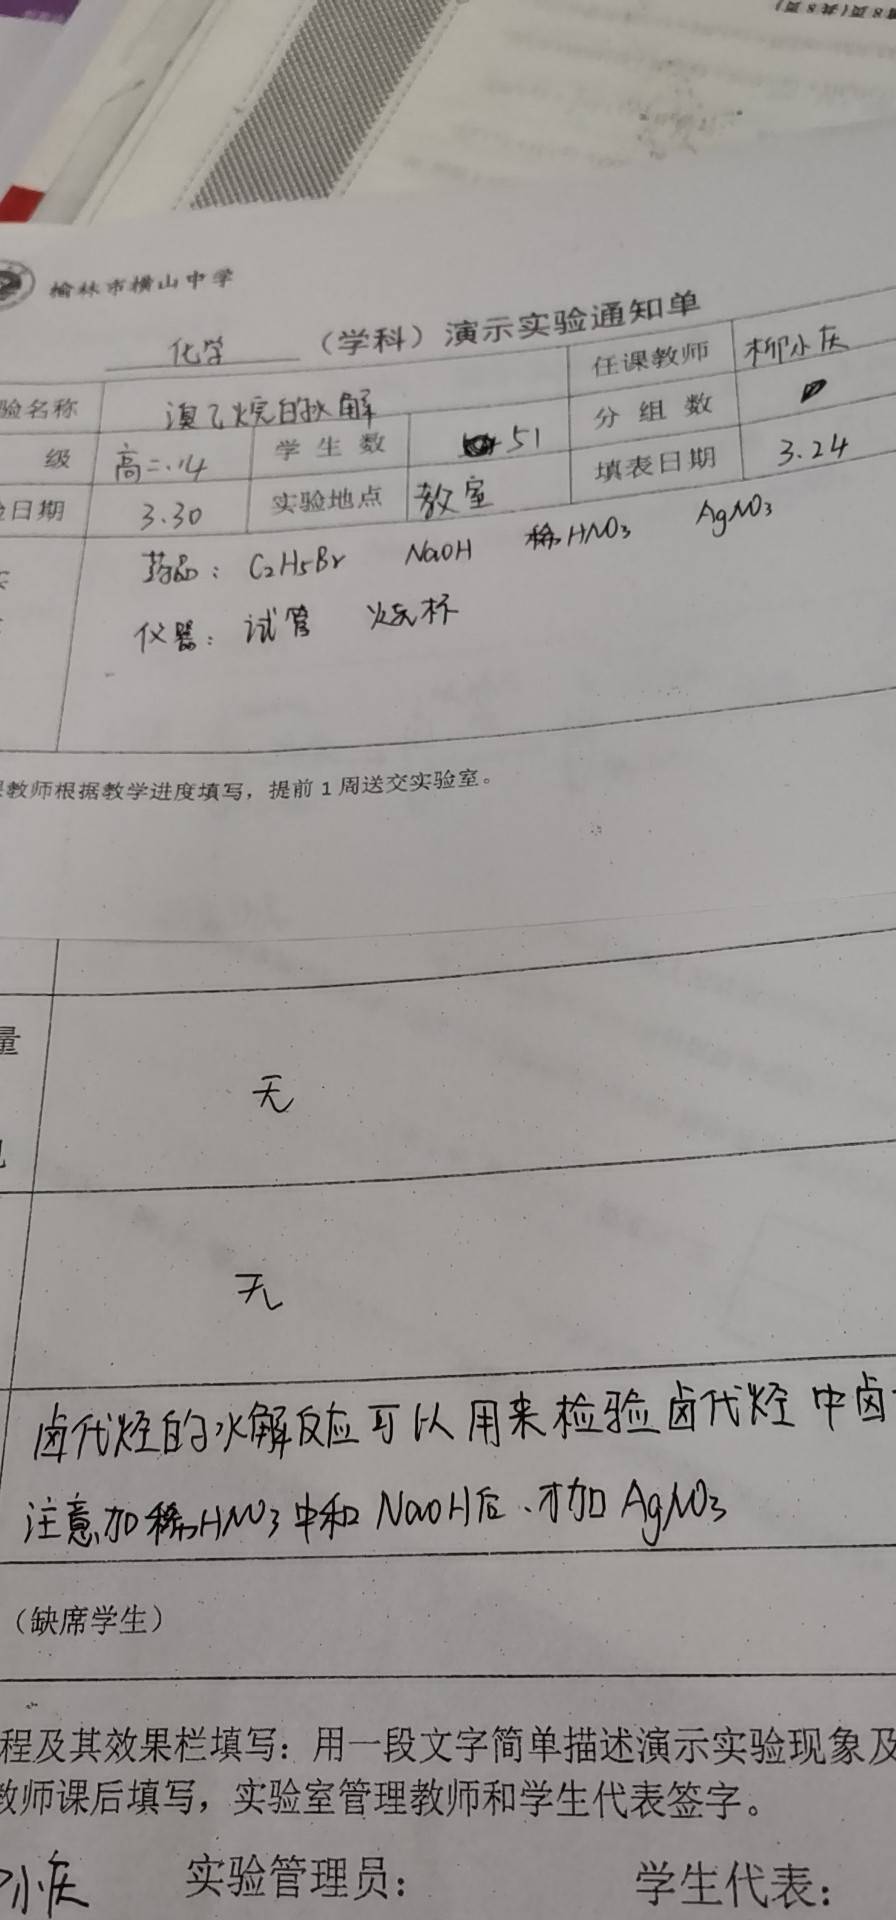 第8页(共8页)
榆林市横山中学
化学（学科）演示实验通知单
验名称 溴乙烷的水解 任课教师 柳小庆
级 高二.14 学生数 51 分组数
验日期 3.30 实验地点 教室 填表日期 3.24
药品：C₂H₅Br NaOH 稀HNO₃ AgNO₃
仪器：试管 烧杯
课教师根据教学进度填写，提前1周送交实验室。
量
无
无
卤代烃的水解反应可以用来检验卤代烃中卤
注意加稀HNO₃中和NaOH后、才加AgNO₃
（缺席学生）
程及其效果栏填写：用一段文字简单描述演示实验现象及
教师课后填写，实验室管理教师和学生代表签字。
小庆 实验管理员： 学生代表：